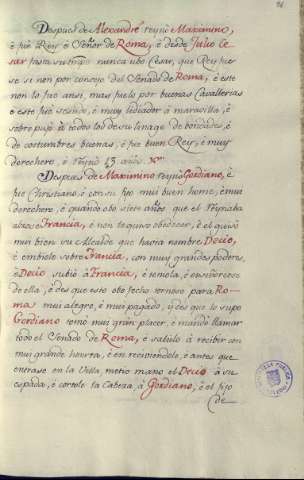 Despues de Alexandre reynó Maximino,
è fuè Rey, è Señor de Roma, è desde Julio Ce
sar fasta su tiempo nunca ubo Cesar, que Rey fue
se si non por consejo del Senado de Roma, è este
non lo fue ansi, mas fuelo por buenas Cavallerias
è este fuè sesudo, è muy lidiador à maravilla, è
sobre pujò à todos los de su linage de bondades, è
de costumbres buenas, è fue buen Rey, è muy
derechero, è Reynò 15 años.
Despues de Maximino reynò Gordiano, è
fue Christiano, è con su fijo mui buen home, è mui
derechero, è quando obo siete años que el Reynaba
alzose Francia, è non le quiso obedecer, è el quiso
mui bien su Alcalde que havia nombre Decio,
è embiolo sobre Francia, con muy grandes poderes,
è Decio subió à Francia, è tomola, è enseñorose
de ella, è des que esto obo fecho tornose para Ro-
ma mui alegre, è mui pagado, y des que lo supo
Gordiano tomò mui gran placer, è mandó llamar
todo el Senado de Roma, è saliólo à recibir con
mui grande honrra, è en recibiendole, è antes que
entrase en la Villa, metio mano el Decio à su
espada, è cortole la Cabeza à Gordiano, è el fijo
de